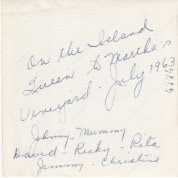 On the Island
Queen to Martha's
Vineyard. July 196
Jamy - Mummy
David - Ricky - Rita
Jimmy - Christine